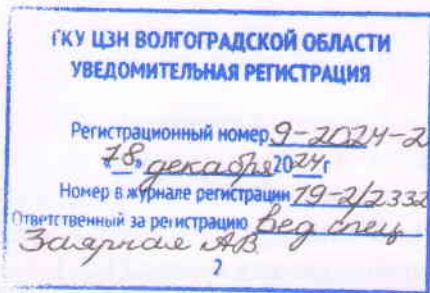 ГКУ ЦЗН ВОЛГОГРАДСКОЙ ОБЛАСТИ
УВЕДОМИТЕЛЬНАЯ РЕГИСТРАЦИЯ
Регистрационный номер 9-2024-2
«18» декабря 2024г
Номер в журнале регистрации 19-2/2332
Ответственный за регистрацию вед спец
Заярная АВ
2